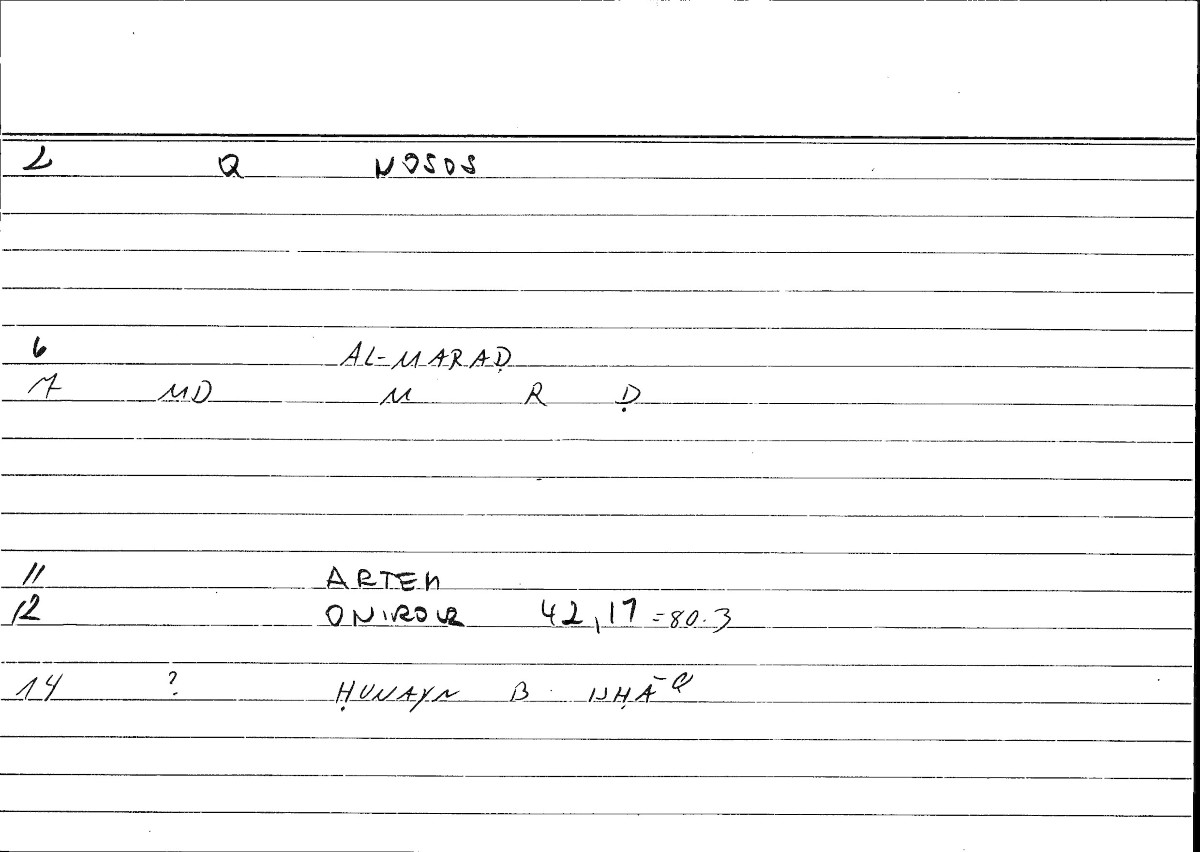 2 Q NOSOS
6 AL-MARAḌ
7 MD M R Ḍ
11 ARTEM
12 ONIROCR 42,17 =80.3
14 ? ḤUNAYN B. ISḤĀQ